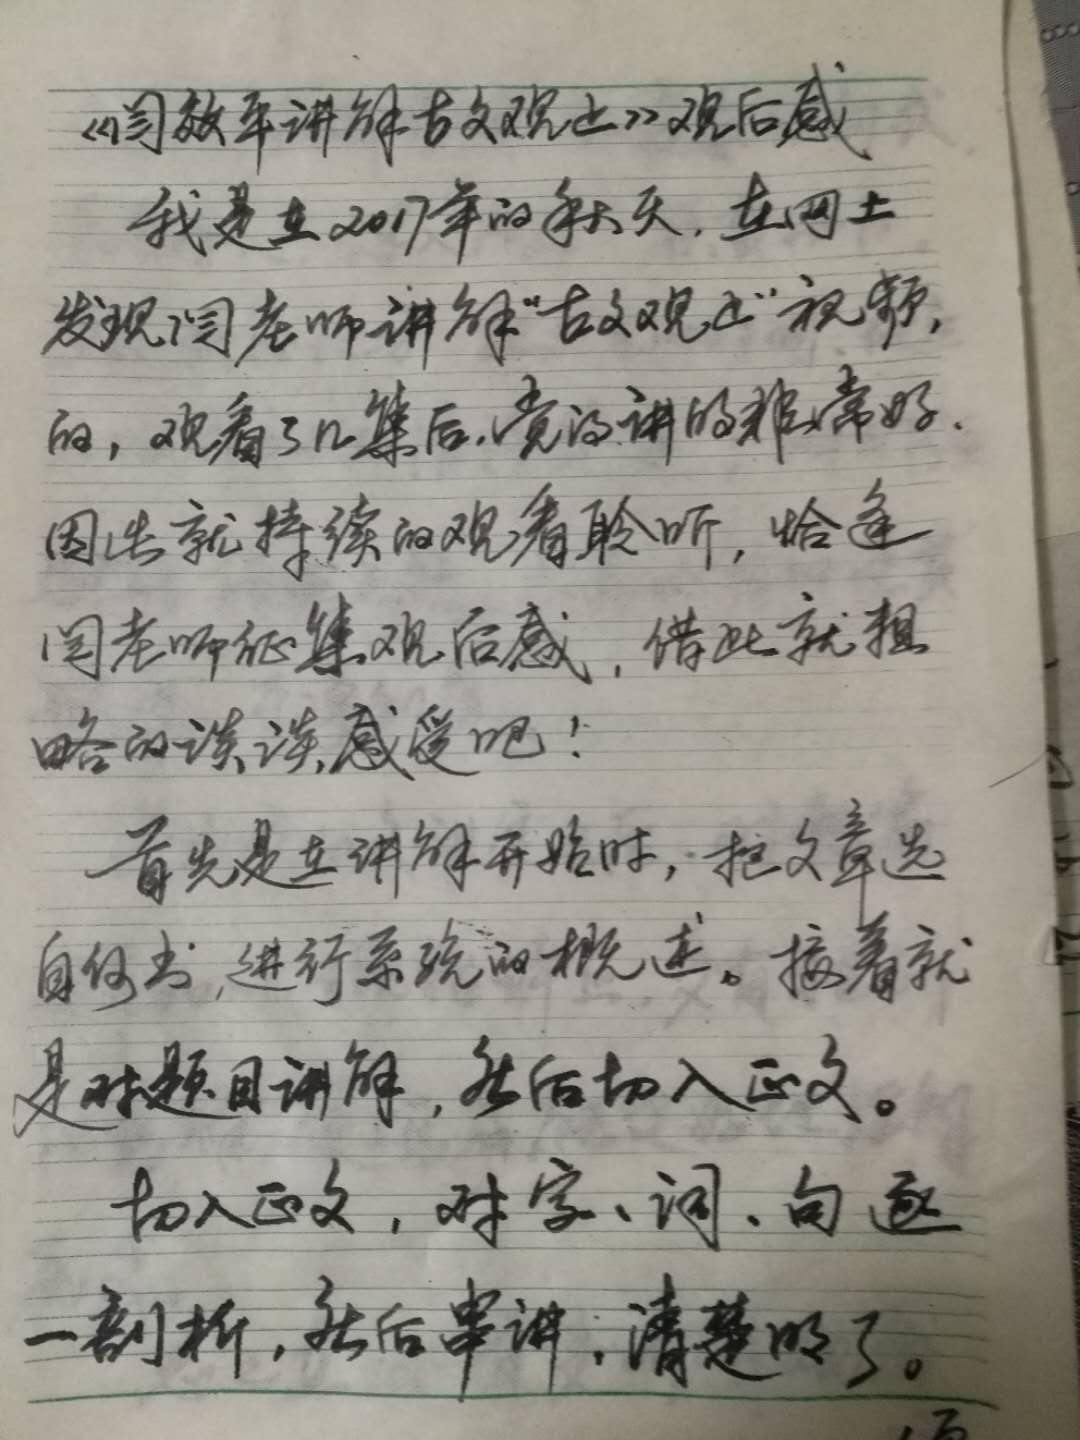 《闫效平讲解古文观止》观后感
我是在2017年的秋天，在网上
发现闫老师讲解“古文观止”视频，
的，观看了几集后，觉的讲的非常好．
因此就持续的观看聆听，恰逢
闫老师征集观后感，借此就粗
略的谈谈感受吧！
首先是在讲解开始时，把文章选
自何书，进行系统的概述。接着就
是对题目讲解，然后切入正文。
切入正文，对字、词、句逐
一剖析，然后串讲，清楚明了。